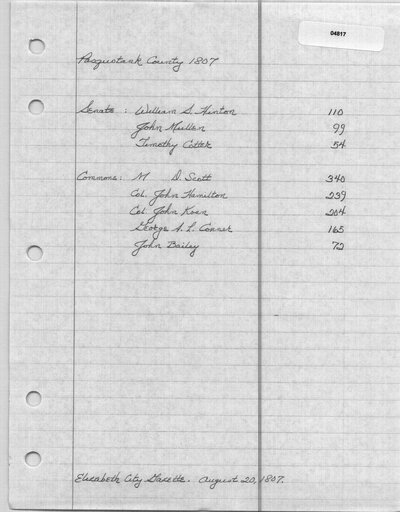 04817
Pasquotank County 1807
Senate: William S. Hinton 110
John Mullen 99
Timothy Cotter 54
Commons: M D. Scott 340
Col. John Hamilton 239
Col. John Koen 204
George A. L. Conner 165
John Bailey 72
Elizabeth City Gazette. August 20, 1807.